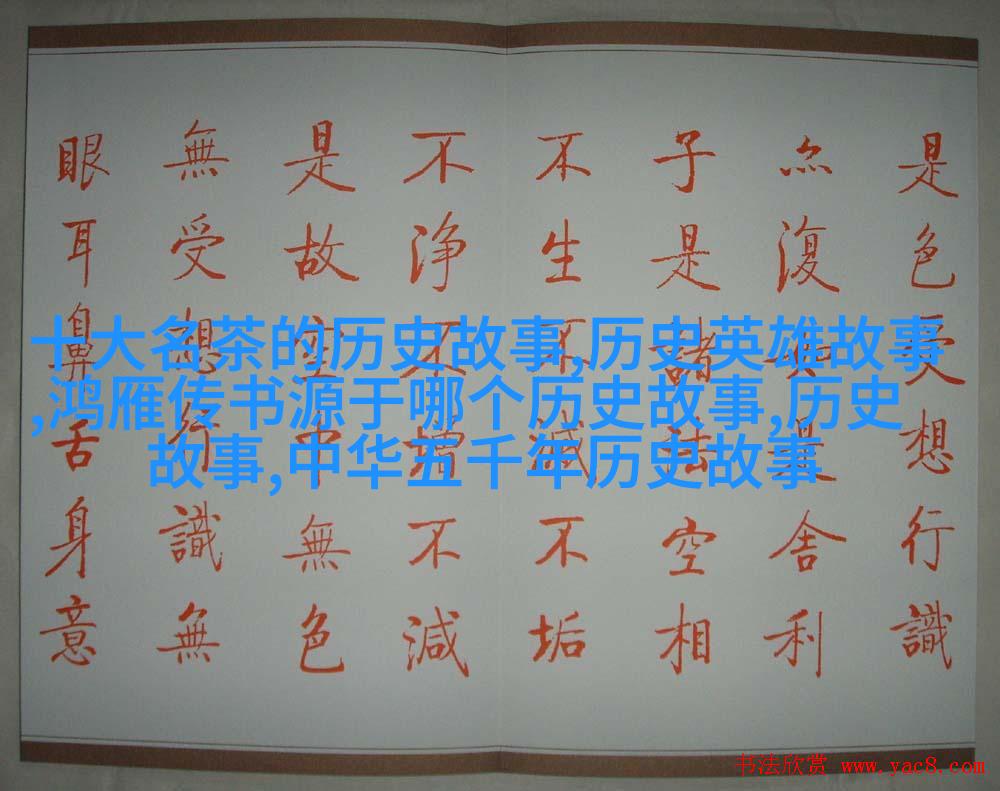 是色受想行識
亦復如是舍利
子是諸法空相
不生不滅不垢
不净不增不減
是故空中無色
無受想行識無
眼耳鼻舌身意
十大名茶的历史故事,历史英雄故事
,鸿雁传书源于哪个历史故事,历史
故事,中华五千年历史故事
书法欣赏 www.yac8.com